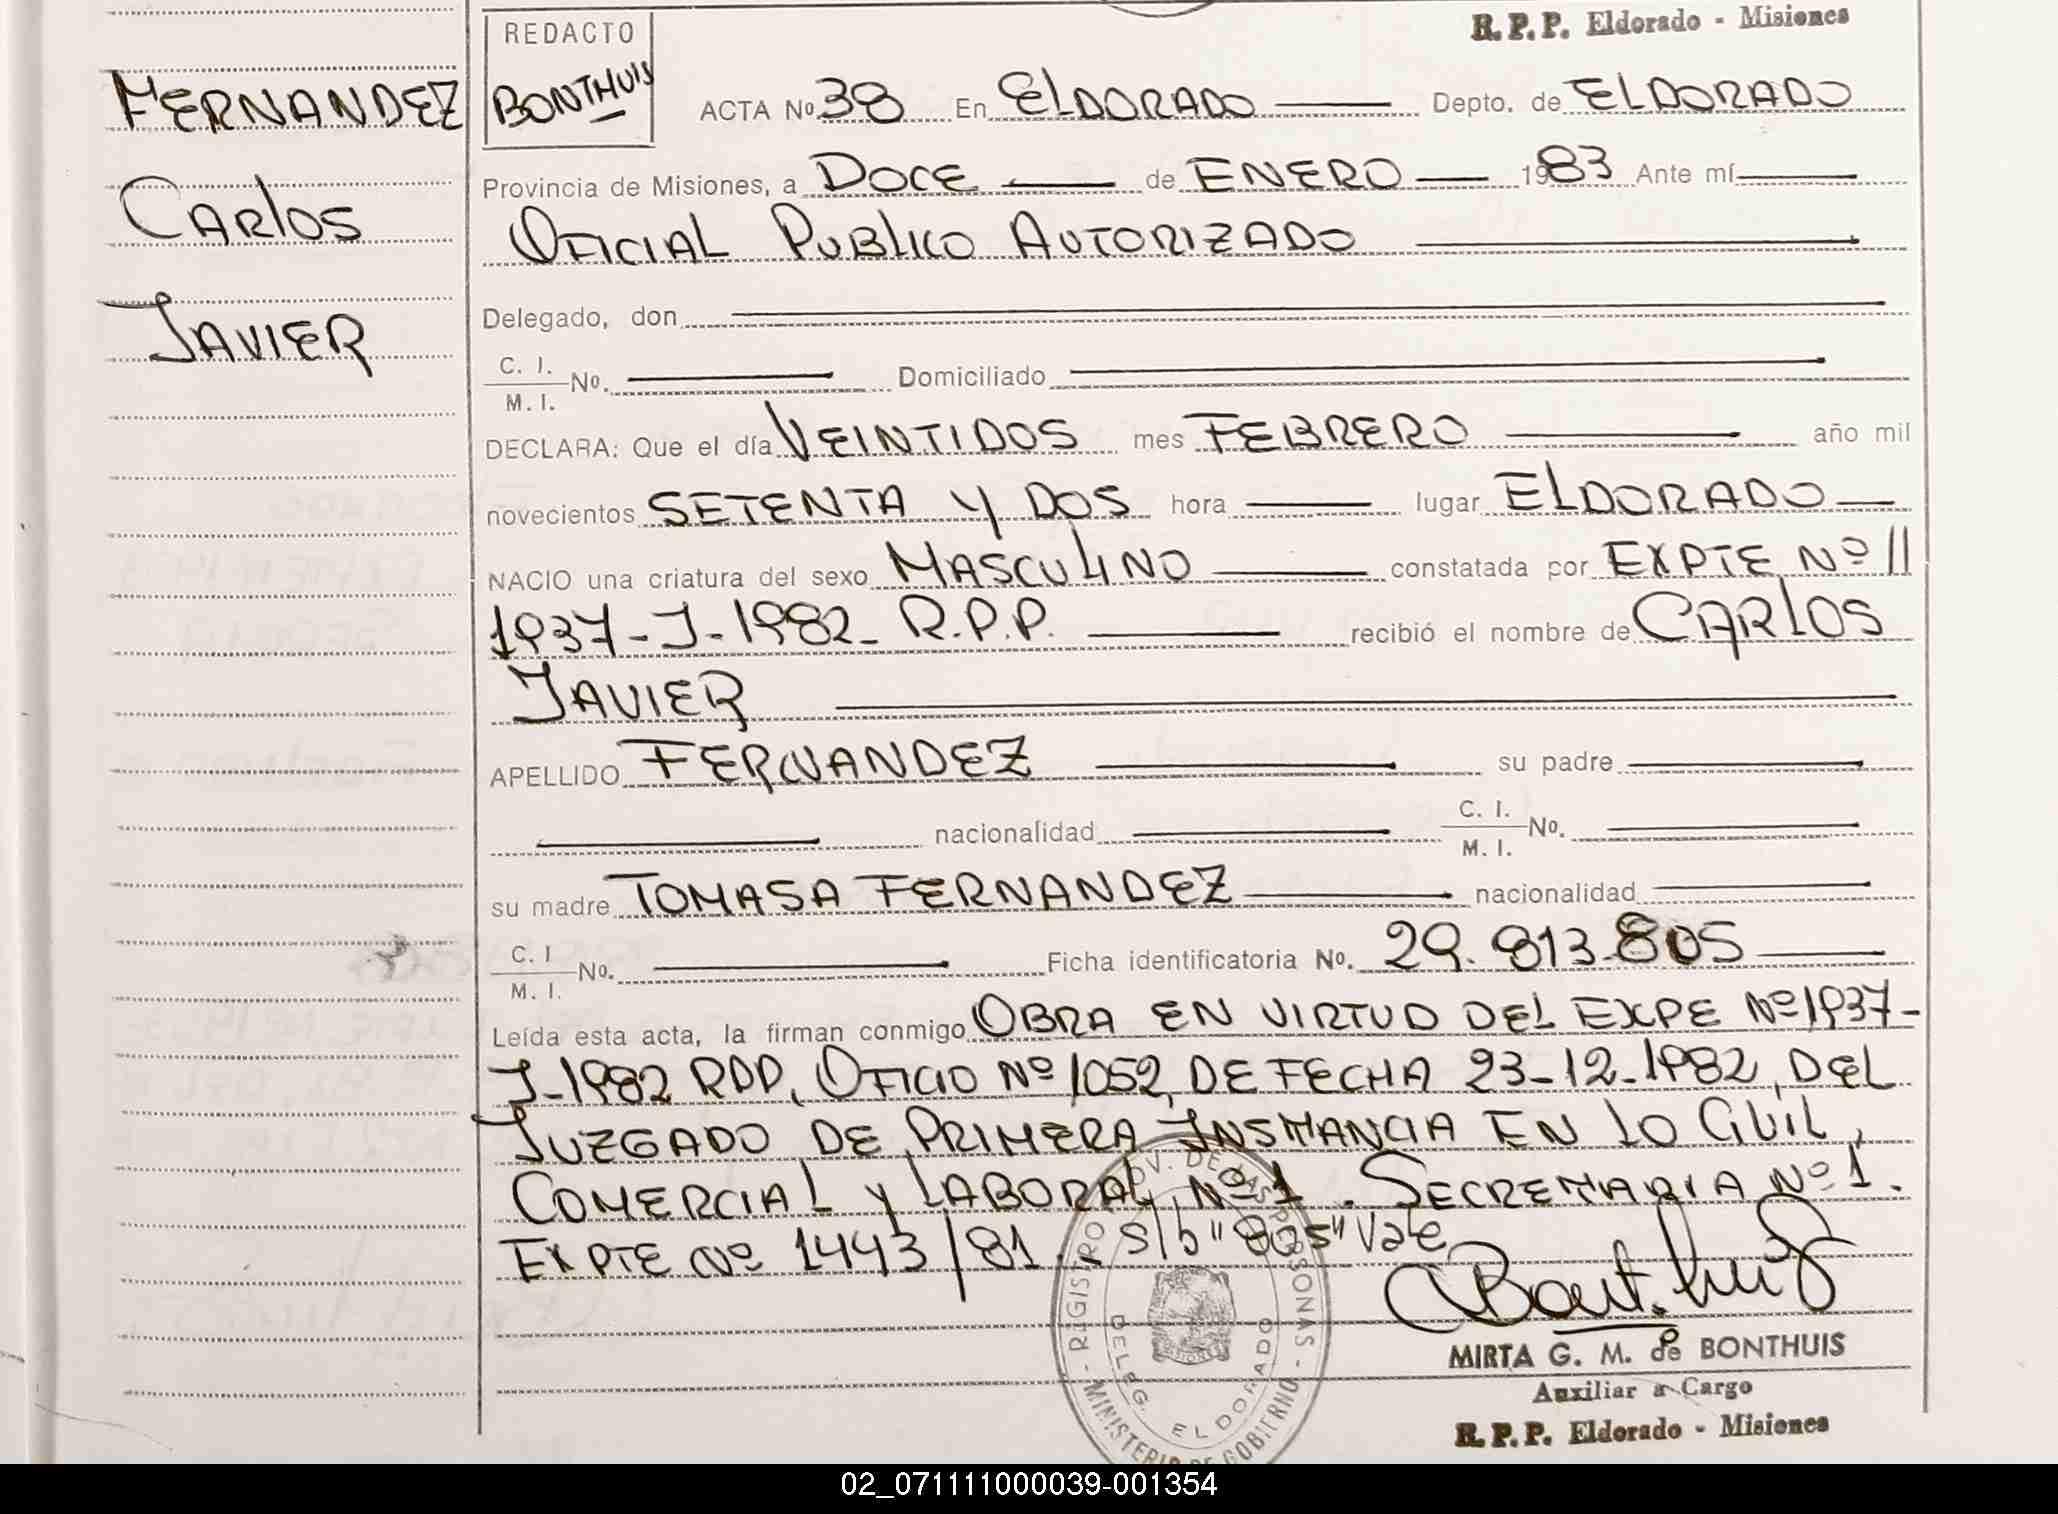 R.P.P. Eldorado - Misiones
REDACTO
BONTHUIS
FERNANDEZ
CARLOS
JAVIER
ACTA No. 38 En ELDORADO Depto. de ELDORADO
Provincia de Misiones, a DOCE de ENERO 1983 Ante mí
OFICIAL PUBLICO AUTORIZADO
Delegado, don
C. I.
M. I. No. Domiciliado
DECLARA: Que el día VEINTIDOS mes FEBRERO año mil
novecientos SETENTA Y DOS hora lugar ELDORADO
NACIO una criatura del sexo MASCULINO constatada por EXPTE Nº 11
1937-J-1982- R.P.P. recibió el nombre de CARLOS
JAVIER
APELLIDO FERNANDEZ su padre
nacionalidad C. I.
M. I. No.
su madre TOMASA FERNANDEZ nacionalidad
C. I
M. I. No. Ficha identificatoria No. 29.813.805
Leída esta acta, la firman conmigo OBRA EN VIRTUD DEL EXPE Nº 1937-
J-1982 RPP, OFICIO Nº 1052, DE FECHA 23-12-1982, DEL
JUZGADO DE PRIMERA INSTANCIA EN LO CIVIL,
COMERCIAL Y LABORAL Nº 1. SECRETARIA Nº 1.
EXPTE Nº 1443/81.. S/b "805" Vale
Bonthuis
REGISTRO PROV. DE LAS PERSONAS - MINISTERIO DE GOBIERNO -
DELEG. ELDORADO
MIRTA G. M. de BONTHUIS
Auxiliar a Cargo
R.P.P. Eldorado - Misiones
02_071111000039-001354